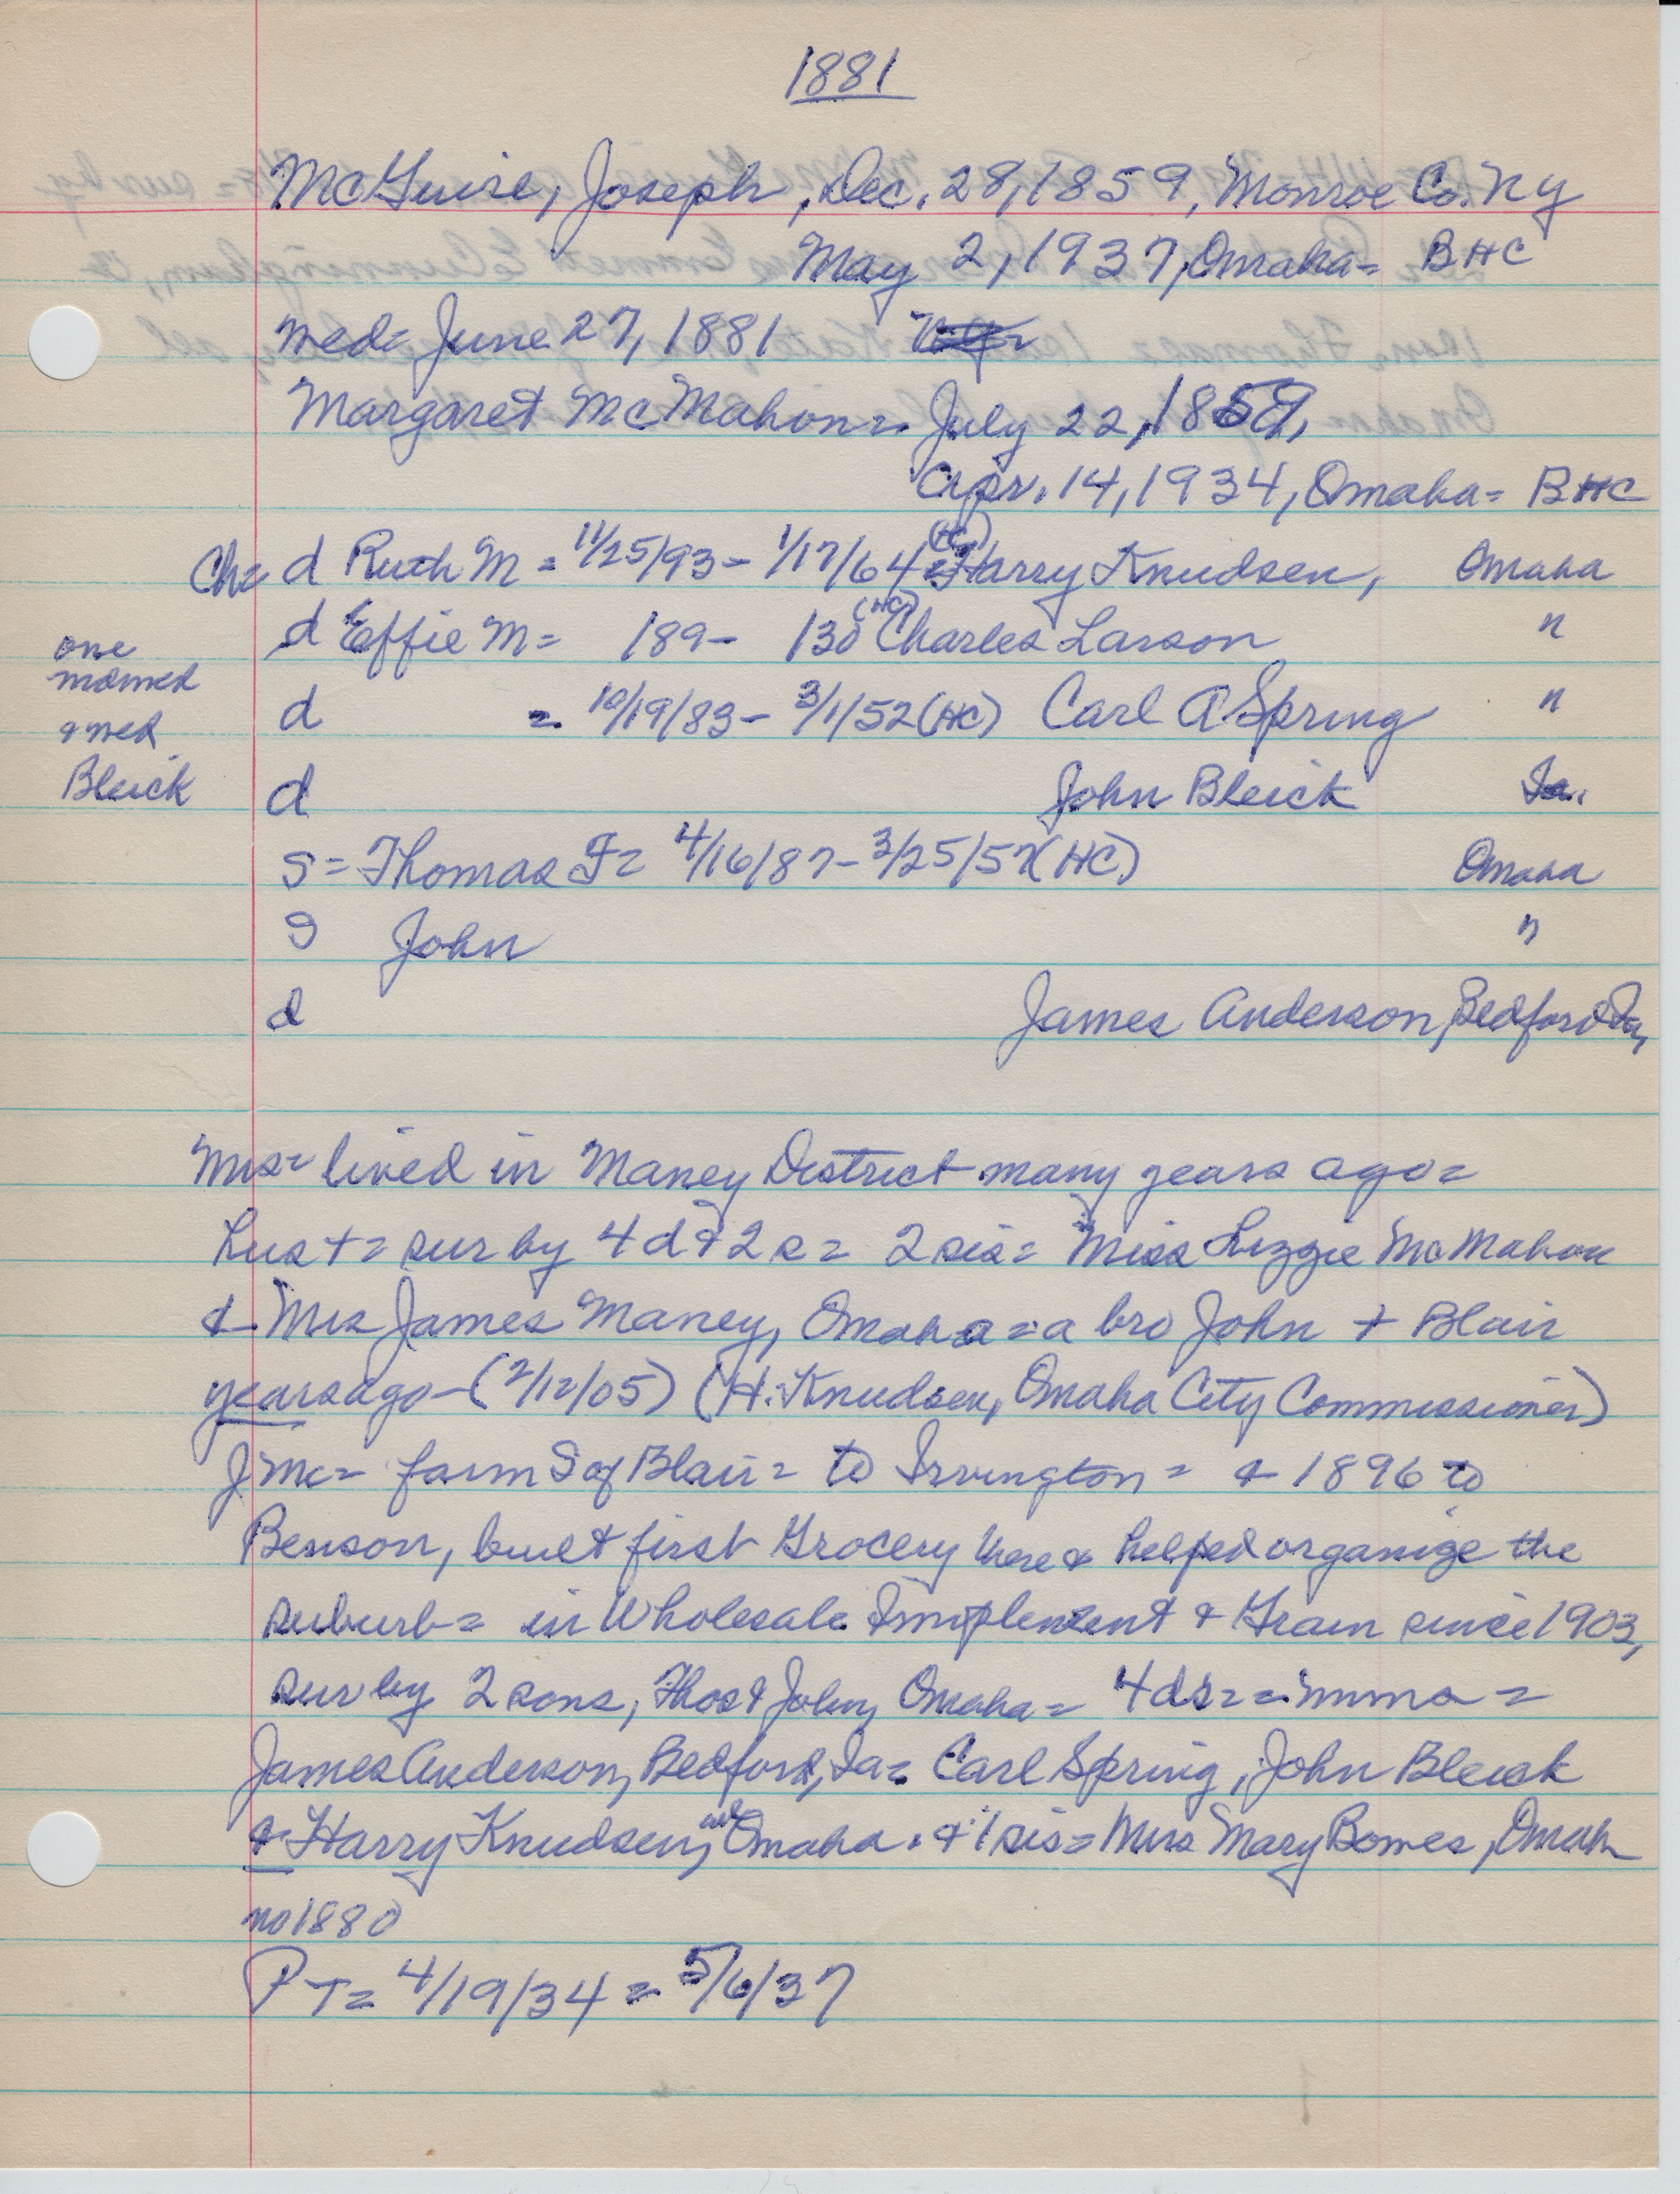 1881
McGuire, Joseph, Dec. 28, 1859, Monroe Co. NY
May 2, 1937, Omaha = BHC
med = June 27, 1881
Margaret McMahon = July 22, 1859,
Apr. 14, 1934, Omaha = BHC
Ch = d Ruth M = 11/25/93 - 1/17/64 (HC) = Harry Knudsen, Omaha
d Effie M = 189- 130 (HC) Charles Larson "
one
d = 10/19/83 - 3/1/52 (HC) Carl A Spring "
& med
Bleick d John Bleick Ia.
S = Thomas F = 4/16/87 - 3/25/57 (HC) Omaha
S John "
d James Anderson, Bedford Ia,
Mrs = lived in Maney District many years ago =
Hus + = sur by 4 d & 2 s = 2 sis = Miss Lizzie McMahon
& Mrs James Maney, Omaha = a bro John + Blair
years ago - (2/12/05) (H. Knudsen, Omaha City Commissioner)
J Mc = farm S of Blair = to Irvington = & 1896 to
Benson, built first Grocery there & helped organize the
suburb = in Wholesale Implement & Grain since 1903,
sur by 2 sons, Thos & John, Omaha = 4 ds = =
James Anderson, Bedford, Ia = Carl Spring, John Bleick
& Harry Knudsen, all Omaha. & 1 sis = Mrs Mary Bowes, Omaha
no 1880
PT = 4/19/34 = 5/6/37